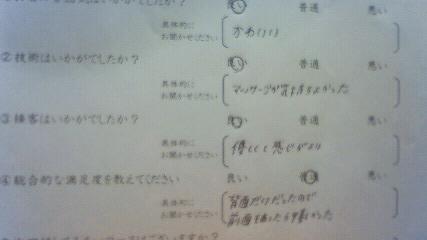 いかがでしたか？
良い 普通 悪い
具体的に かわいい
お聞かせください
②技術はいかがでしたか？
良い 普通 悪い
具体的に マッサージが気持ちよかった
お聞かせください
③接客はいかがでしたか？
良い 普通 悪い
具体的に 優しくて感じがよい
お聞かせください
④総合的な満足度を教えてください
良い 普通 悪い
具体的に 背面だけだったので
お聞かせください 前面も